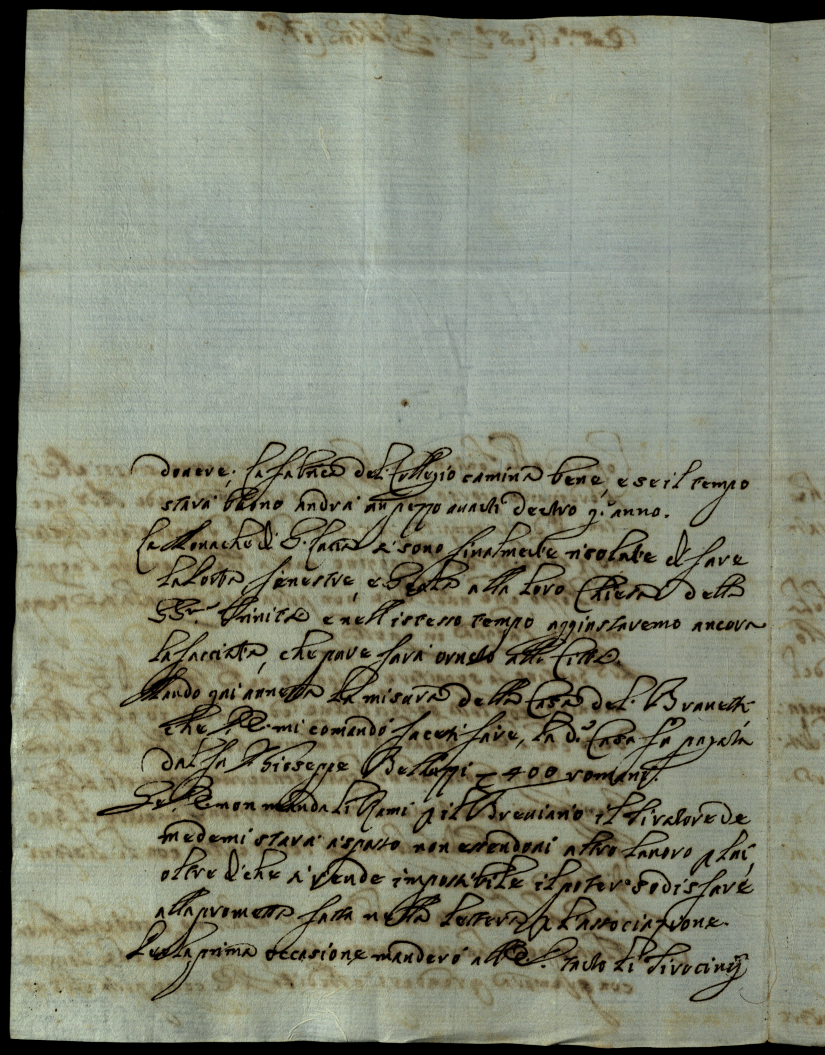 dovere; la fabrica del Collegio camina bene, e se il tempo
starà buono andrà un pezzo avanti dentro q.o anno.
Le Monache di S. si sono finalmente risolute di fare
la Porta, fenestre, e alla loro Chiesa della
SS.ma Trinità e nell istesso tempo aggiustaremo ancora
la facciata, che pure farà ornato alla Città.
Mando qui annessa la misura della Casa del Brunetti
che mi comandò facessi fare, la d.a Casa fù pagata
dal fu Gioseppe 400 romani.
Se non manda li Rami p il Breviario il tiratore de
medemi starà a spasso non essendovi altro lavoro p lui,
oltre di che si rende impossibile il poter sodisfare
alla promessa fatta nella lettera p l'associazione.
Con la prima occasione manderò al Paolo li